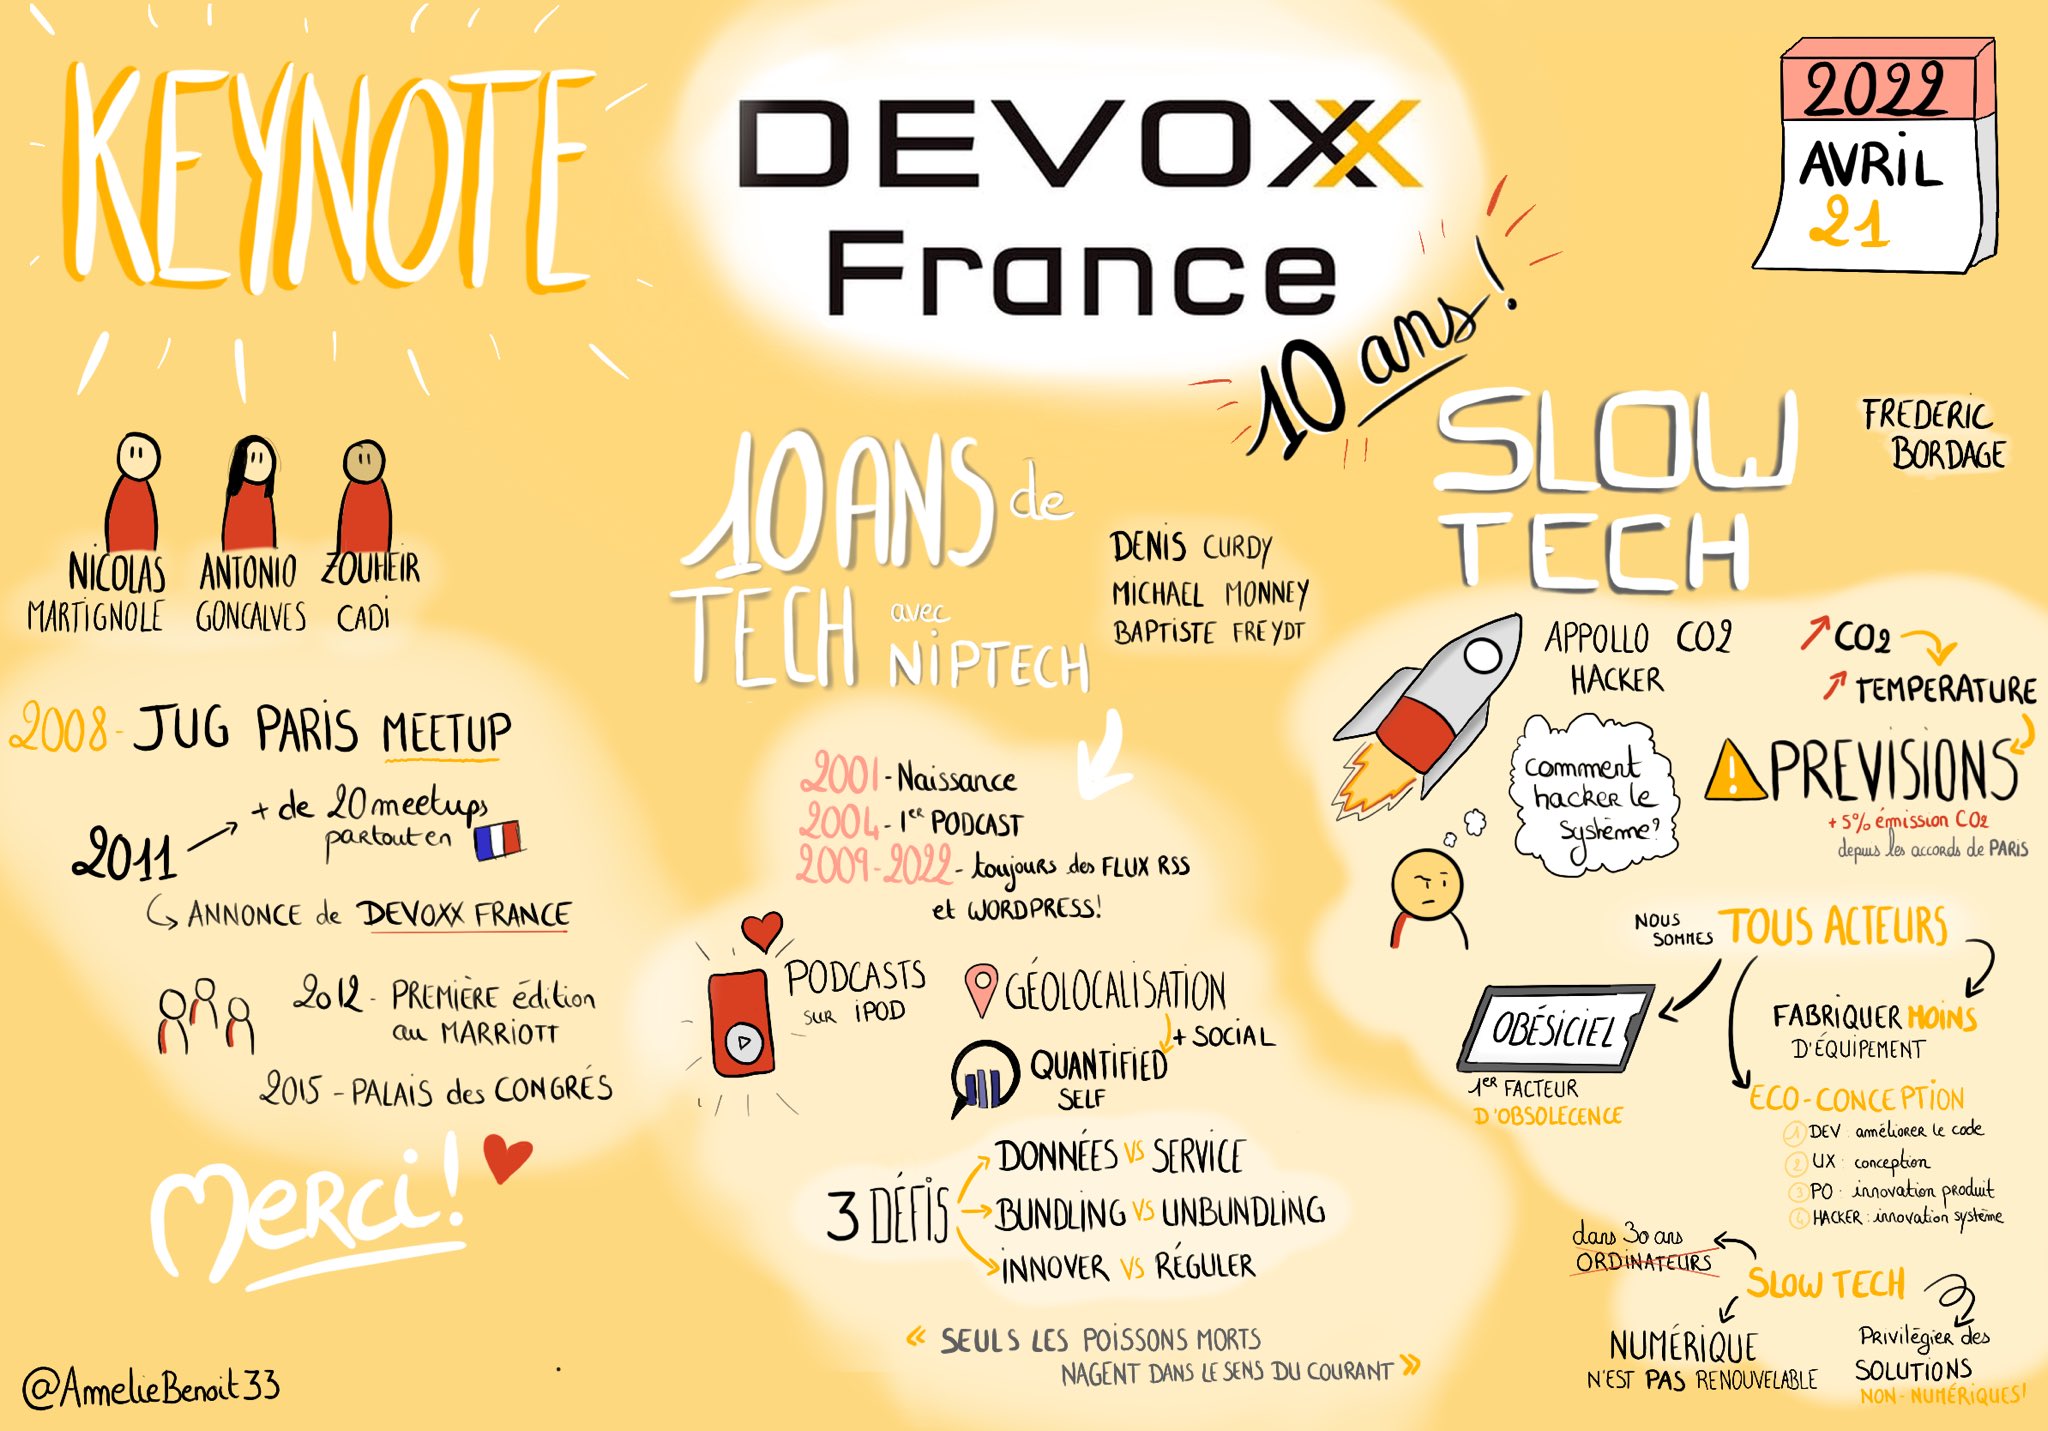 KEYNOTE
DEVOXX
France
10 ans !
2022
AVRIL
21
NICOLAS
MARTIGNOLE
ANTONIO
GONCALVES
ZOUHEIR
CADI
2008 - JUG PARIS MEETUP
2011
+ de 20 meetups
partout en
ANNONCE de DEVOXX FRANCE
2012 - PREMIÈRE édition
au MARRIOTT
2015 - PALAIS des CONGRÉS
Merci !
@AmelieBenoit33
10 ANS de
TECH avec
NIPTECH
DENIS CURDY
MICHAEL MONNEY
BAPTISTE FREYDT
2001 - Naissance
2004 - 1er PODCAST
2009-2022 - toujours des FLUX RSS
et WORDPRESS!
PODCASTS
sur iPOD
GÉOLOCALISATION
+ SOCIAL
QUANTIFIED
SELF
3 DÉFIS
DONNÉES VS SERVICE
BUNDLING VS UNBUNDLING
INNOVER VS RÉGULER
« SEULS LES POISSONS MORTS
NAGENT DANS LE SENS DU COURANT »
SLOW
TECH
FREDERIC
BORDAGE
APPOLLO CO2
HACKER
comment
hacker le
système?
CO2
TEMPERATURE
PREVISIONS
+ 5% émission CO2
depuis les accords de PARIS
NOUS
SOMMES
TOUS ACTEURS
OBÉSICIEL
1er FACTEUR
D'OBSOLECENCE
FABRIQUER MOINS
D'ÉQUIPEMENT
ECO-CONCEPTION
1 DEV : améliorer le code
2 UX : conception
3 PO : innovation produit
4 HACKER : innovation système
dans 30 ans
ORDINATEURS
SLOW TECH
NUMÉRIQUE
N'EST PAS RENOUVELABLE
Privilégier des
SOLUTIONS
NON-NUMÉRIQUES!